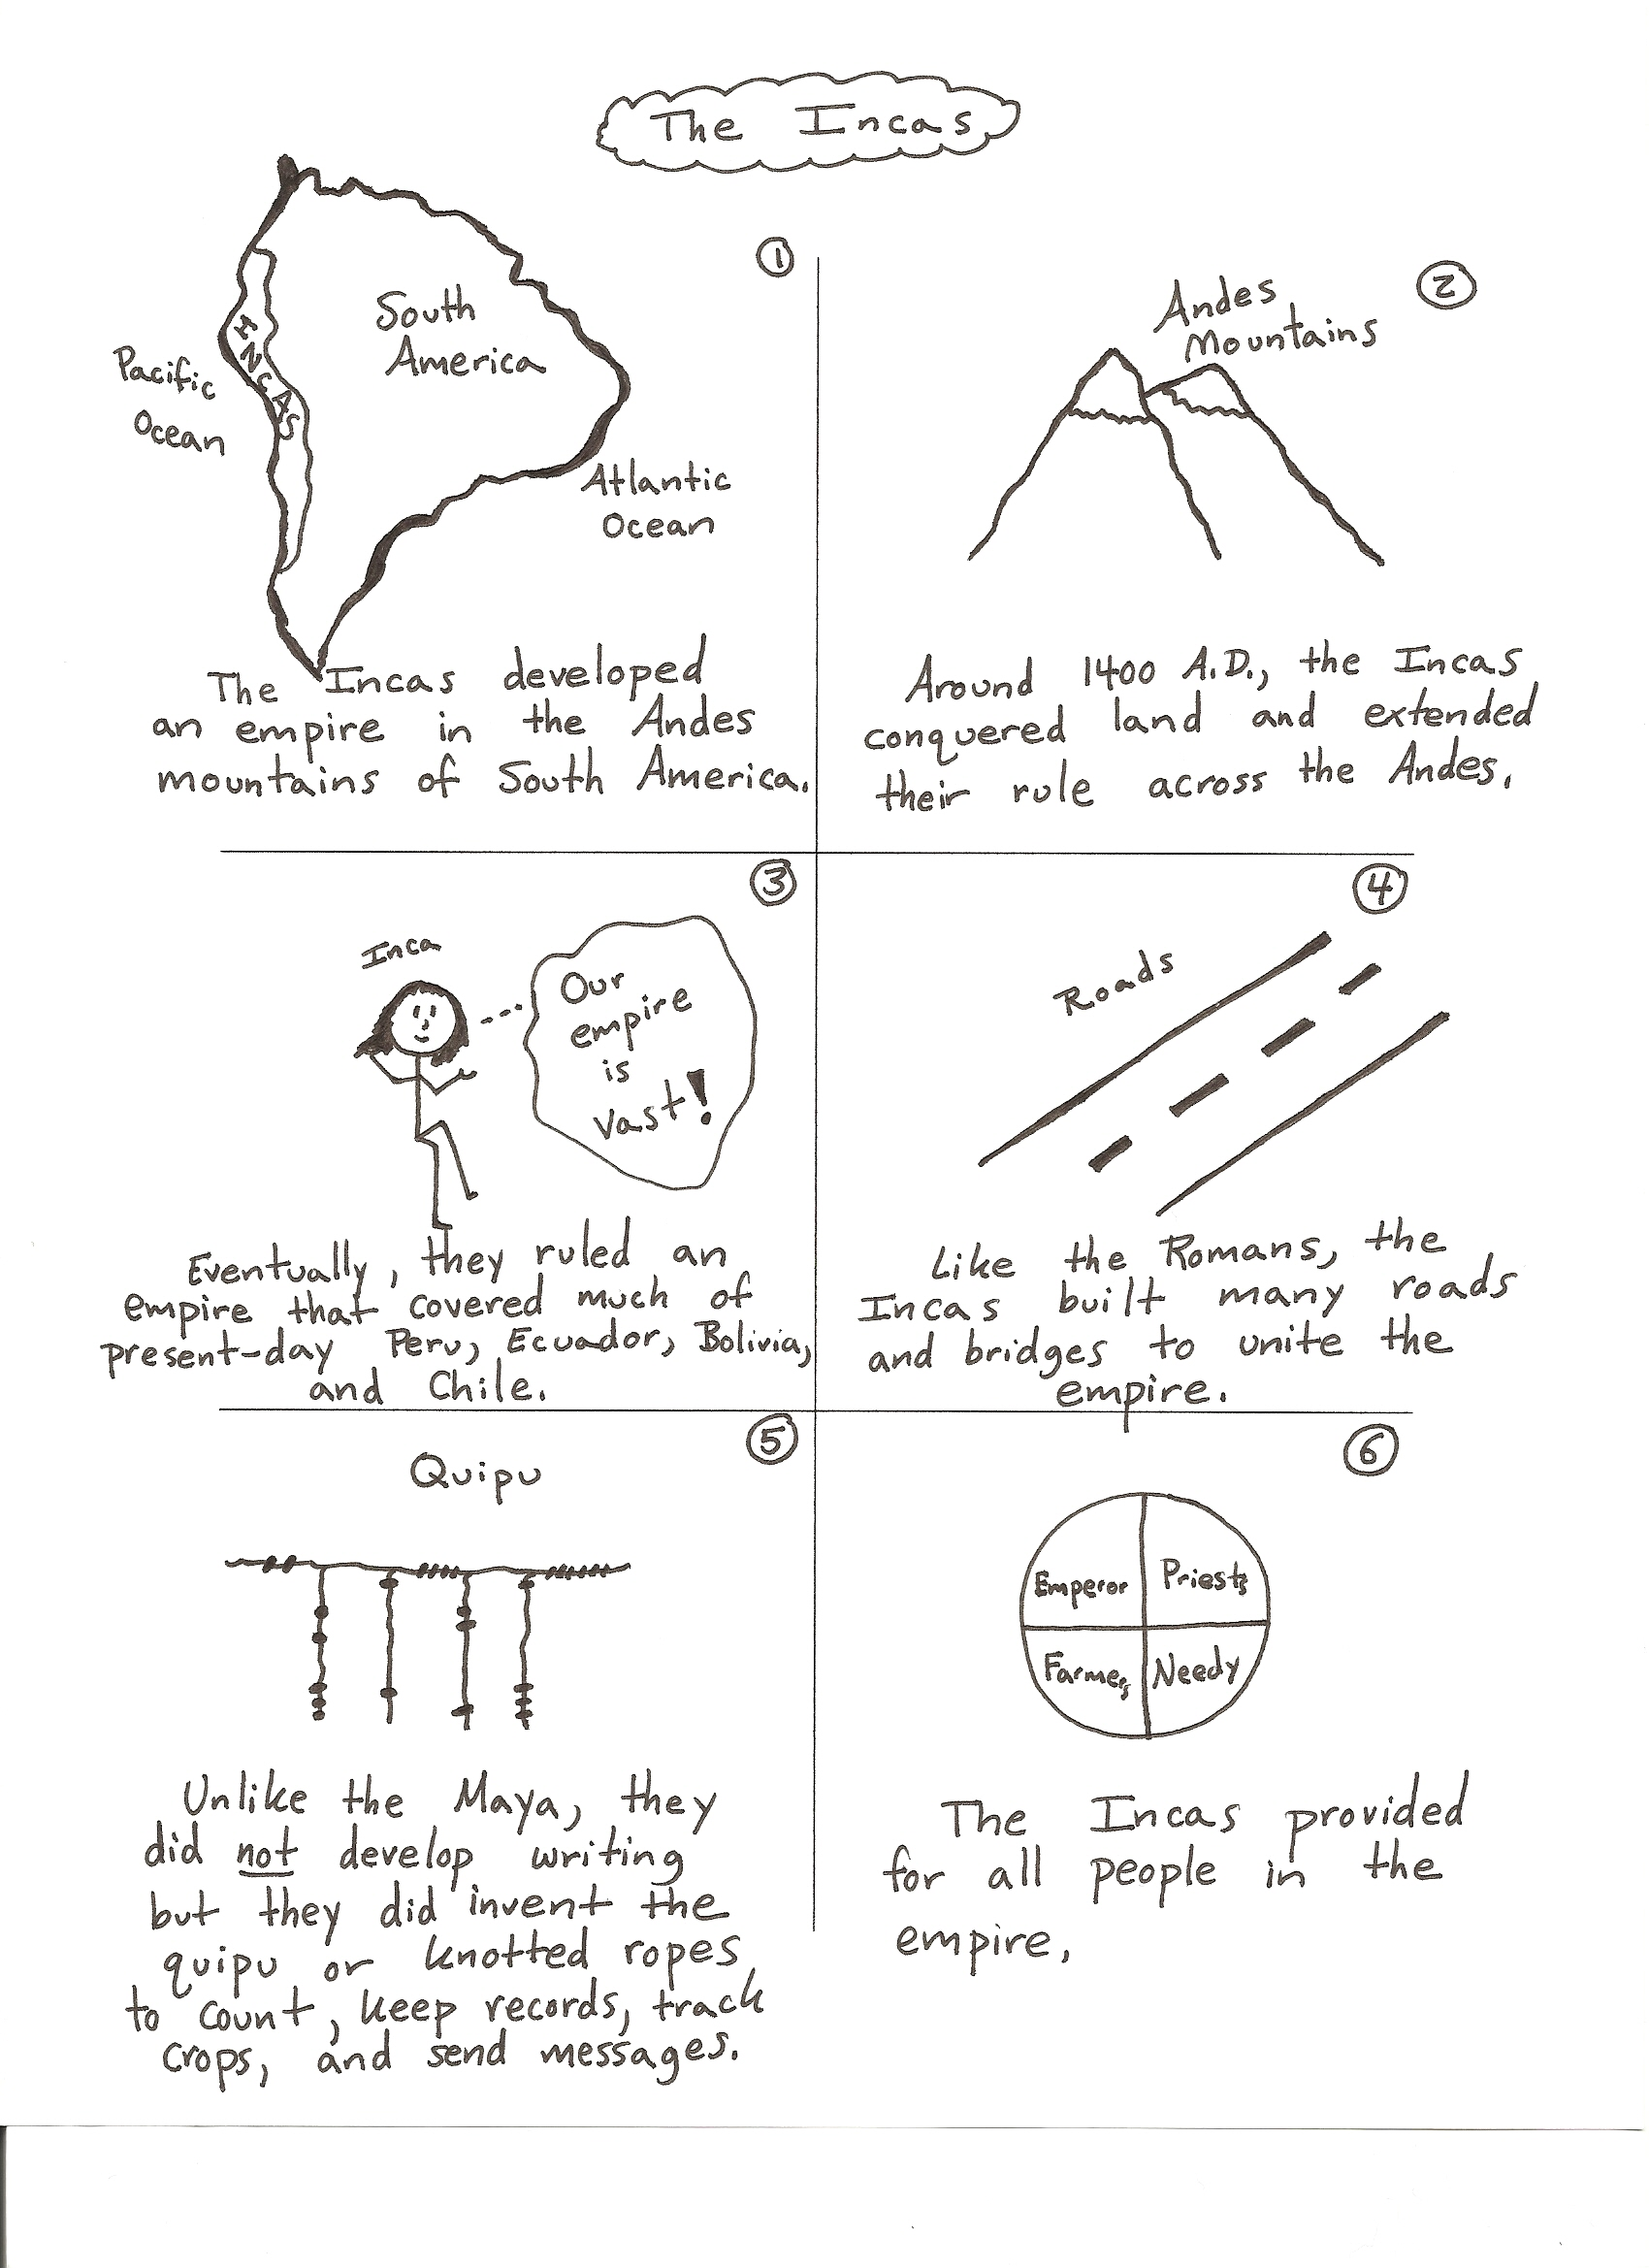 The Incas
1
South
America
INCAS
Pacific
Ocean
Atlantic
Ocean
The Incas developed
an empire in the Andes
mountains of South America.
2
Andes
Mountains
Around 1400 A.D., the Incas
conquered land and extended
their rule across the Andes.
3
Inca
Our
empire
is
vast!
Eventually, they ruled an
empire that covered much of
present-day Peru, Ecuador, Bolivia,
and Chile.
4
Roads
Like the Romans, the
Incas built many roads
and bridges to unite the
empire.
5
Quipu
Unlike the Maya, they
did not develop writing
but they did invent the
quipu or knotted ropes
to count, keep records, track
crops, and send messages.
6
Emperor
Priests
Farmers
Needy
The Incas provided
for all people in the
empire.